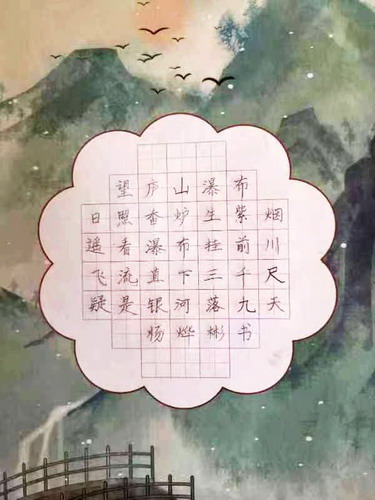 望庐山瀑布
日照香炉生紫烟
遥看瀑布挂前川
飞流直下三千尺
疑是银河落九天
杨烨彬书